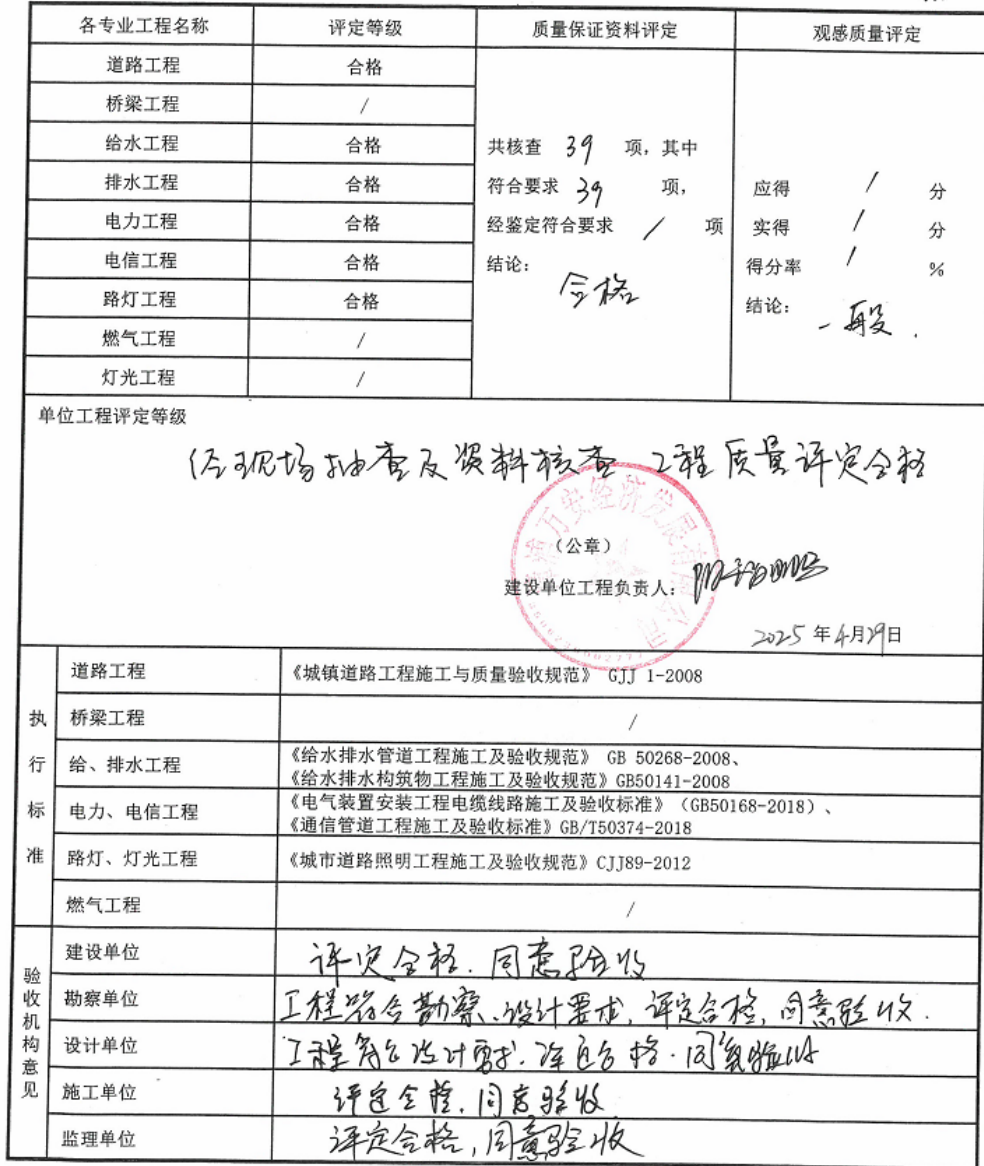 各专业工程名称 评定等级 质量保证资料评定 观感质量评定
道路工程 合格
桥梁工程 /
给水工程 合格
排水工程 合格
电力工程 合格
电信工程 合格
路灯工程 合格
燃气工程 /
灯光工程 /
共核查 39 项，其中
符合要求 39 项，
经鉴定符合要求 / 项
结论：
合格
应得 / 分
实得 / 分
得分率 / %
结论：
一般.
单位工程评定等级
经现场抽查及资料核查 工程质量评定合格
万安经济发展有限公司
（公章）
建设单位工程负责人：
2025 年 4月29日
执行标准
道路工程 《城镇道路工程施工与质量验收规范》 GJJ 1-2008
桥梁工程 /
给、排水工程 《给水排水管道工程施工及验收规范》 GB 50268-2008、
《给水排水构筑物工程施工及验收规范》GB50141-2008
电力、电信工程 《电气装置安装工程电缆线路施工及验收标准》（GB50168-2018）、
《通信管道工程施工及验收标准》GB/T50374-2018
路灯、灯光工程 《城市道路照明工程施工及验收规范》CJJ89-2012
燃气工程 /
验收机构意见
建设单位 评定合格.同意验收
勘察单位 工程符合勘察、设计要求,评定合格,同意验收.
设计单位 工程符合设计要求.评定合格.同意验收
施工单位 评定合格,同意验收
监理单位 评定合格,同意验收